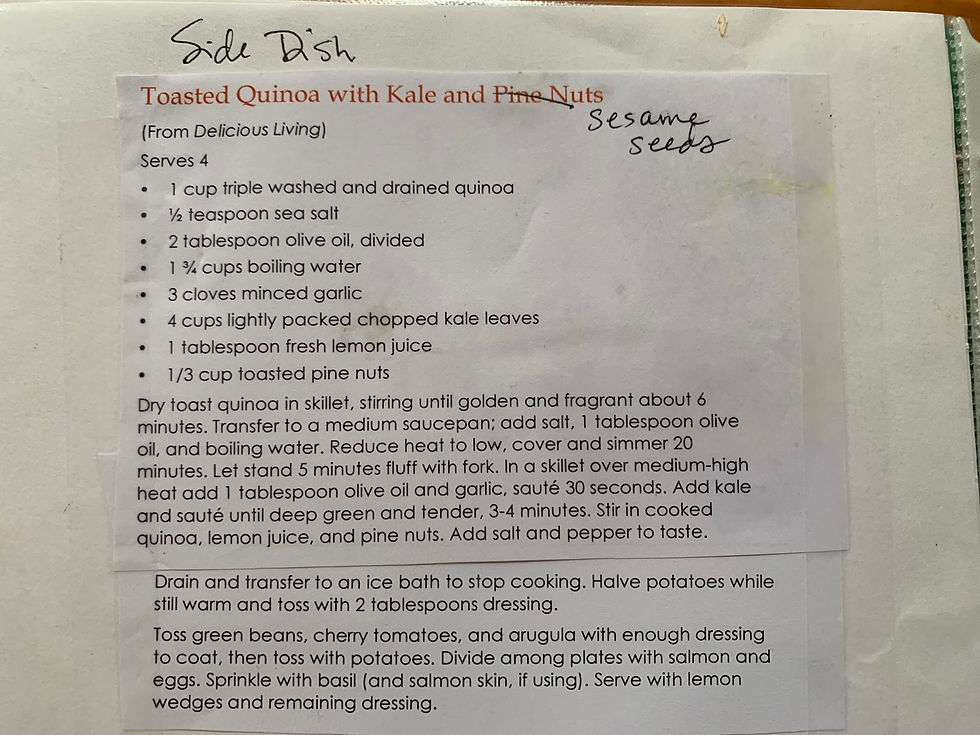 Side Dish
Toasted Quinoa with Kale and Pine Nuts
sesame
seeds
(From Delicious Living)
Serves 4
• 1 cup triple washed and drained quinoa
• ½ teaspoon sea salt
• 2 tablespoon olive oil, divided
• 1 ¾ cups boiling water
• 3 cloves minced garlic
• 4 cups lightly packed chopped kale leaves
• 1 tablespoon fresh lemon juice
• 1/3 cup toasted pine nuts
Dry toast quinoa in skillet, stirring until golden and fragrant about 6
minutes. Transfer to a medium saucepan; add salt, 1 tablespoon olive
oil, and boiling water. Reduce heat to low, cover and simmer 20
minutes. Let stand 5 minutes fluff with fork. In a skillet over medium-high
heat add 1 tablespoon olive oil and garlic, sauté 30 seconds. Add kale
and sauté until deep green and tender, 3-4 minutes. Stir in cooked
quinoa, lemon juice, and pine nuts. Add salt and pepper to taste.
Drain and transfer to an ice bath to stop cooking. Halve potatoes while
still warm and toss with 2 tablespoons dressing.
Toss green beans, cherry tomatoes, and arugula with enough dressing
to coat, then toss with potatoes. Divide among plates with salmon and
eggs. Sprinkle with basil (and salmon skin, if using). Serve with lemon
wedges and remaining dressing.